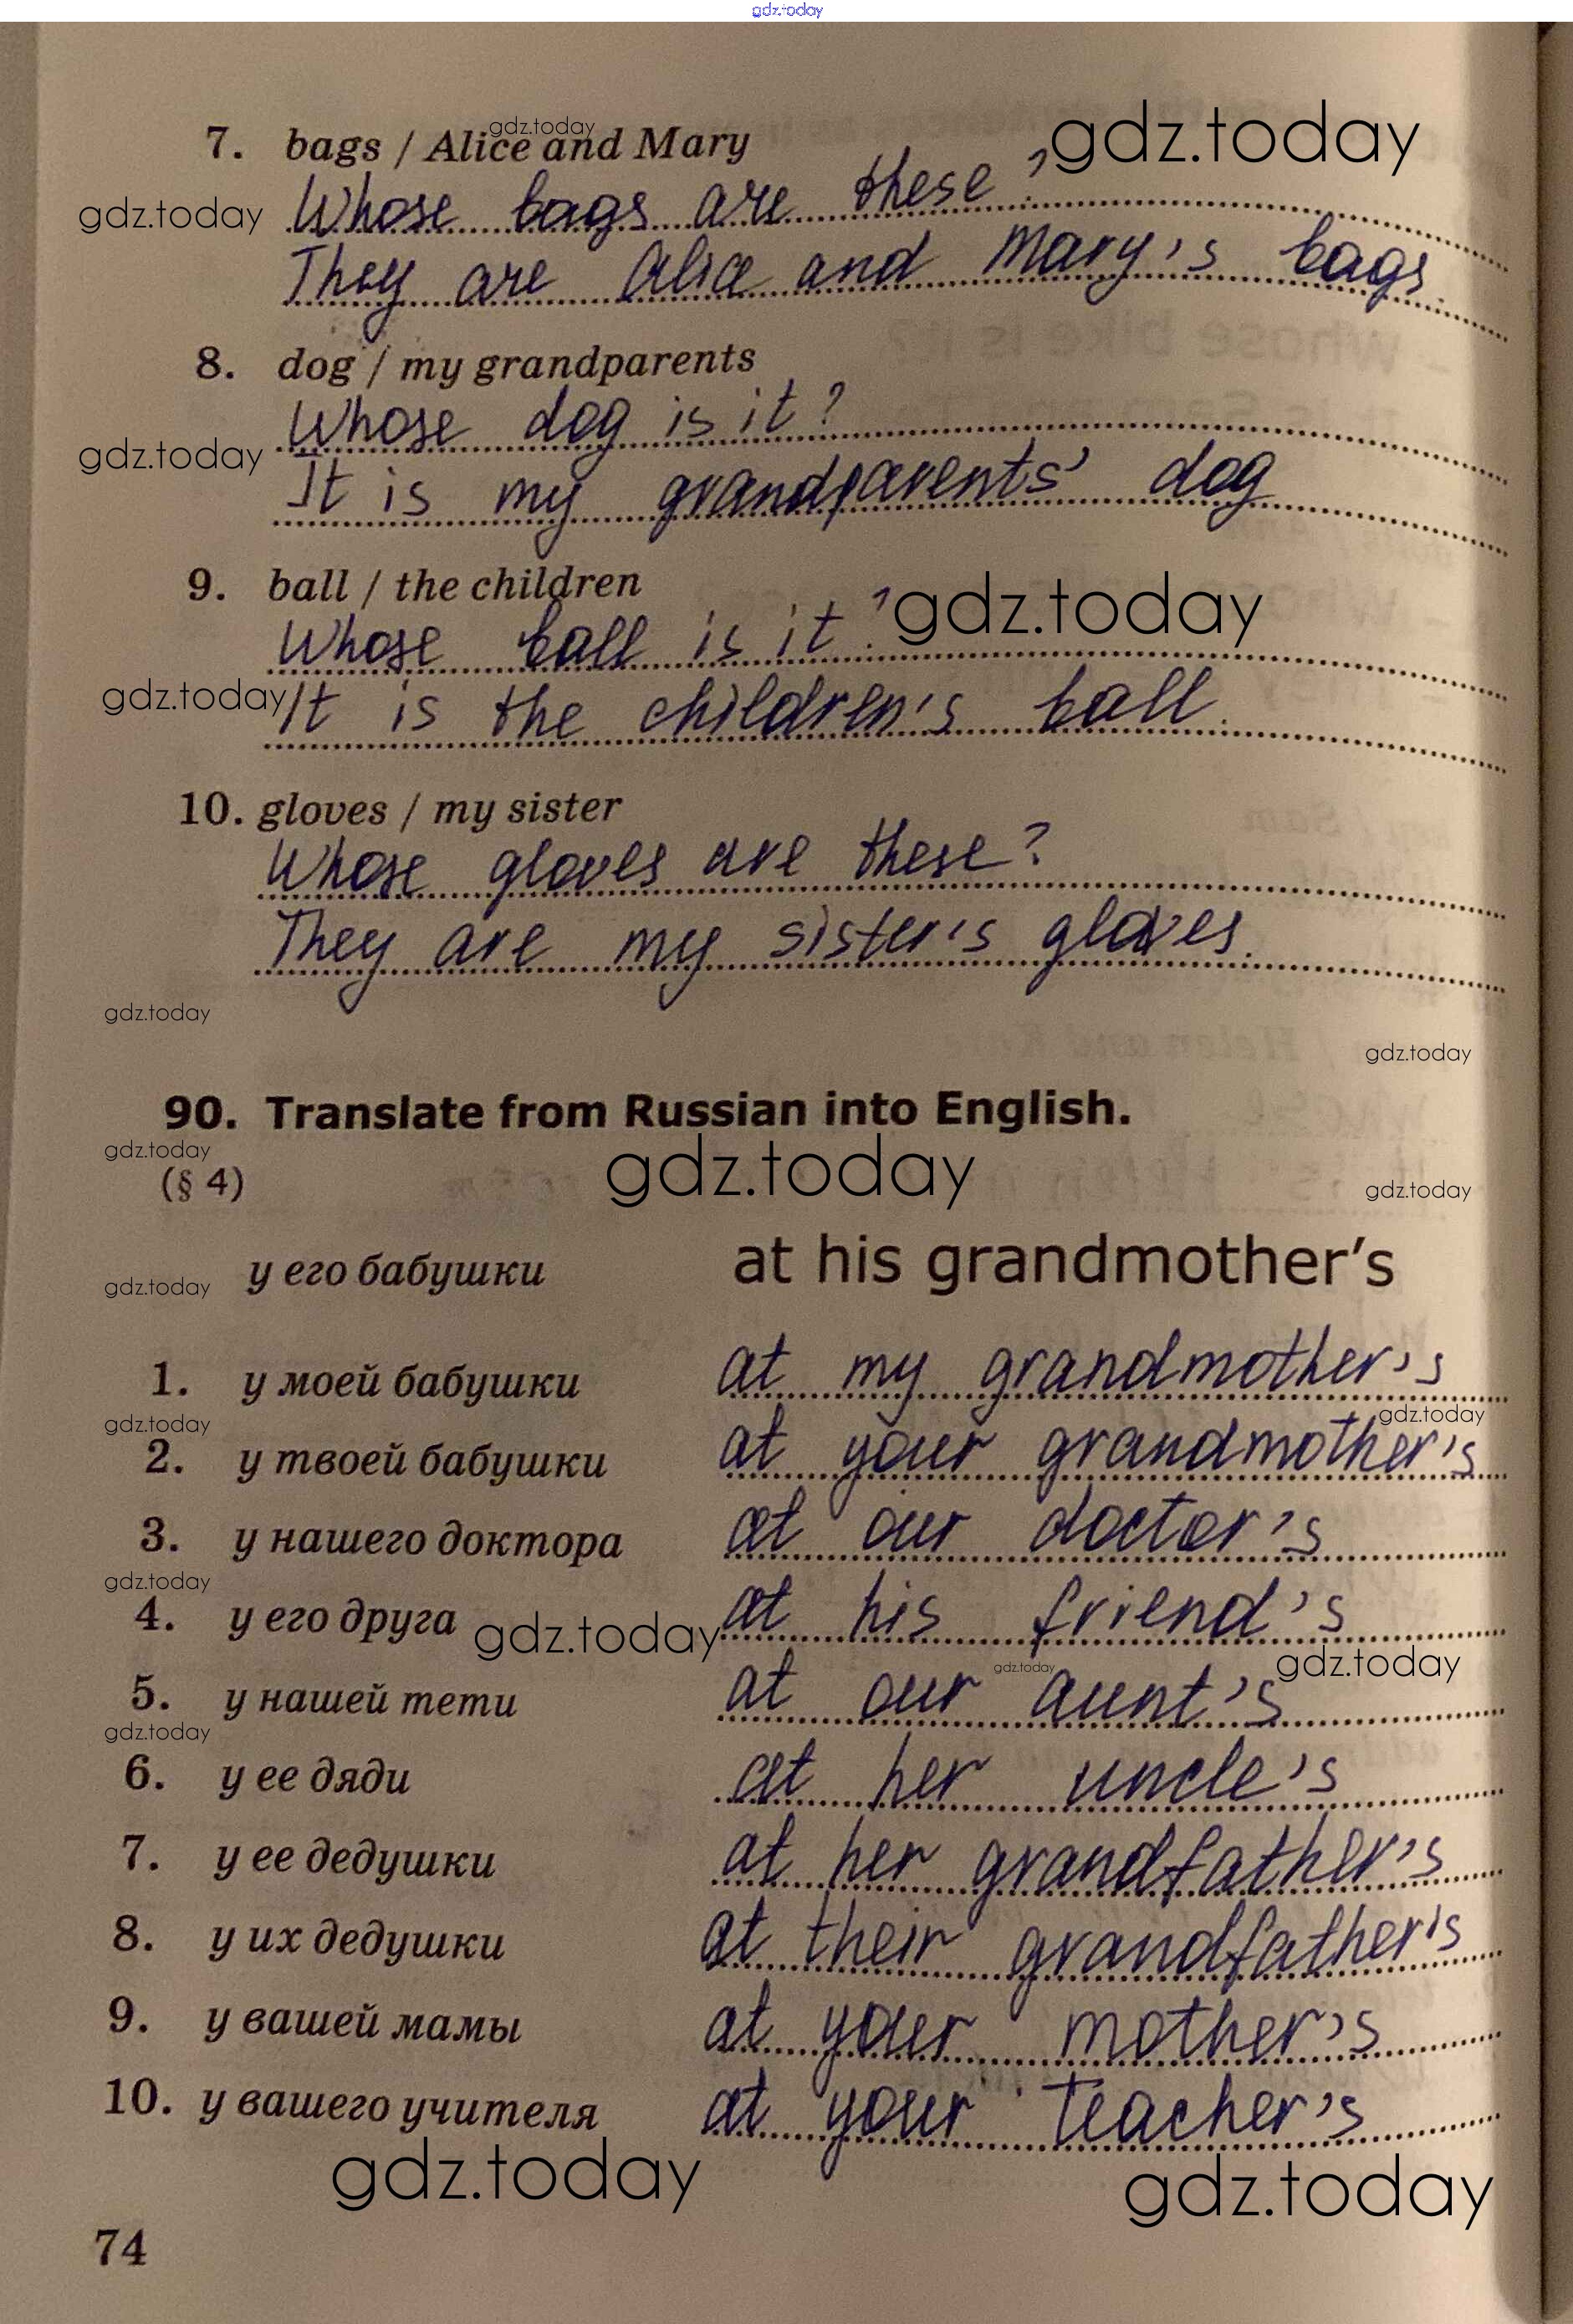 gdz.today
7. bags / Alice and Mary
gdz.today
gdz.today
gdz.today Whose bags are these?
They are Alice and Mary's bags.
8. dog / my grandparents
Whose dog is it?
gdz.today
It is my grandparents' dog
9. ball / the children
gdz.today
Whose ball is it?
gdz.today It is the children's ball.
10. gloves / my sister
Whose gloves are these?
They are my sister's gloves.
gdz.today
gdz.today
90. Translate from Russian into English.
gdz.today
(§ 4)
gdz.today
gdz.today
у его бабушки at his grandmother's
gdz.today
1. у моей бабушки at my grandmother's
gdz.today
gdz.today
2. у твоей бабушки at your grandmother's
3. у нашего доктора at our doctor's
gdz.today
4. у его друга at his friend's
gdz.today
gdz.today
gdz.today
5. у нашей тети at our aunt's
gdz.today
6. у ее дяди at her uncle's
7. у ее дедушки at her grandfather's
8. у их дедушки at their grandfather's
9. у вашей мамы at your mother's
10. у вашего учителя at your teacher's
gdz.today
gdz.today
74